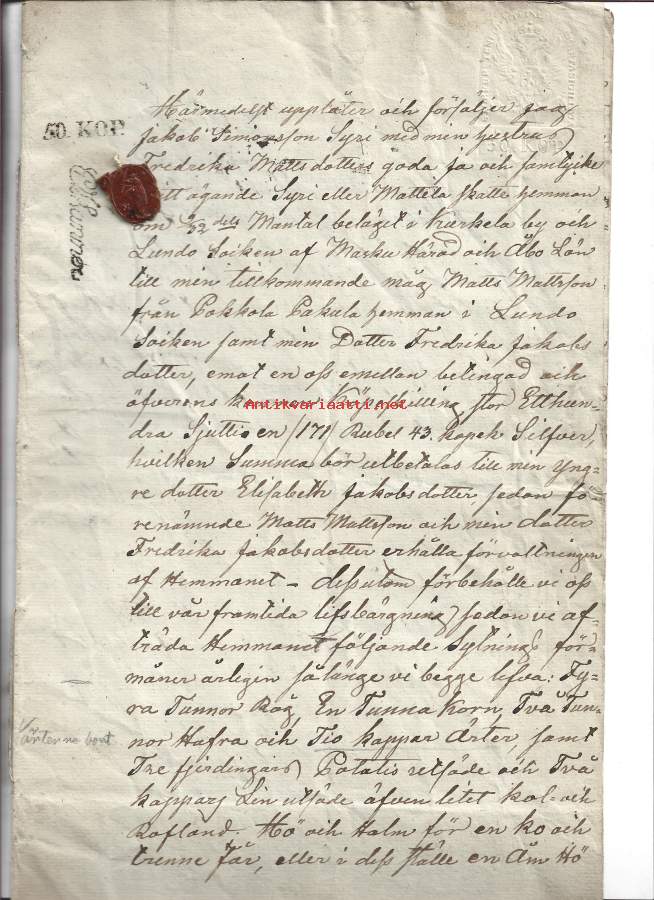 50. KOP.
Härmedelst upplåter och försäljer jag
Jakob Simonsson Syri med min hustrus
Fredrika Mattsdotters goda ja och samtycke
mitt ägande Syri eller Mattela Skatte hemman
om dels Mantal beläget i Kurkela by och
Lundo Soiken af Masku Härad och Åbo Län
till min tillkommande måg Matts Mattsson
från Pokkola Pakula hemman i Lundo
Soiken samt min Dotter Fredrika Jakobs
dotter, emot en oss emellan betingad och
öfverens kommen Köpeskilling stor Etthun-
Antikvariaatti.net
dra Sjuttio en /171/ Rubel 43. kopek Silfver,
hvilken Summa bör utbetalas till min yng-
re dotter Elisabeth Jakobsdotter, sedan fö-
renämnde Matts Mattsson och min dotter
Fredrika Jakobsdotter erhålla förvaltningen
af Hemmanet – dessutom förbehålle vi oss
till vår framtida lifsbärgning sedan vi af-
träda Hemmanet följande Sytnings för-
måner årligen så länge vi begge lefva: Fy-
ra Tunnor Råg, En Tunna Korn, Två Tun-
nor Hafra och Tio kappar Ärter, samt
ärterne bort
Tre fjerdingars Potatis utsäde och Två
kappars Lin utsäde äfven litet kol- och
Rofland. Hö och Halm för en ko och
trenne Får, eller i dess ställe en Åm Hö